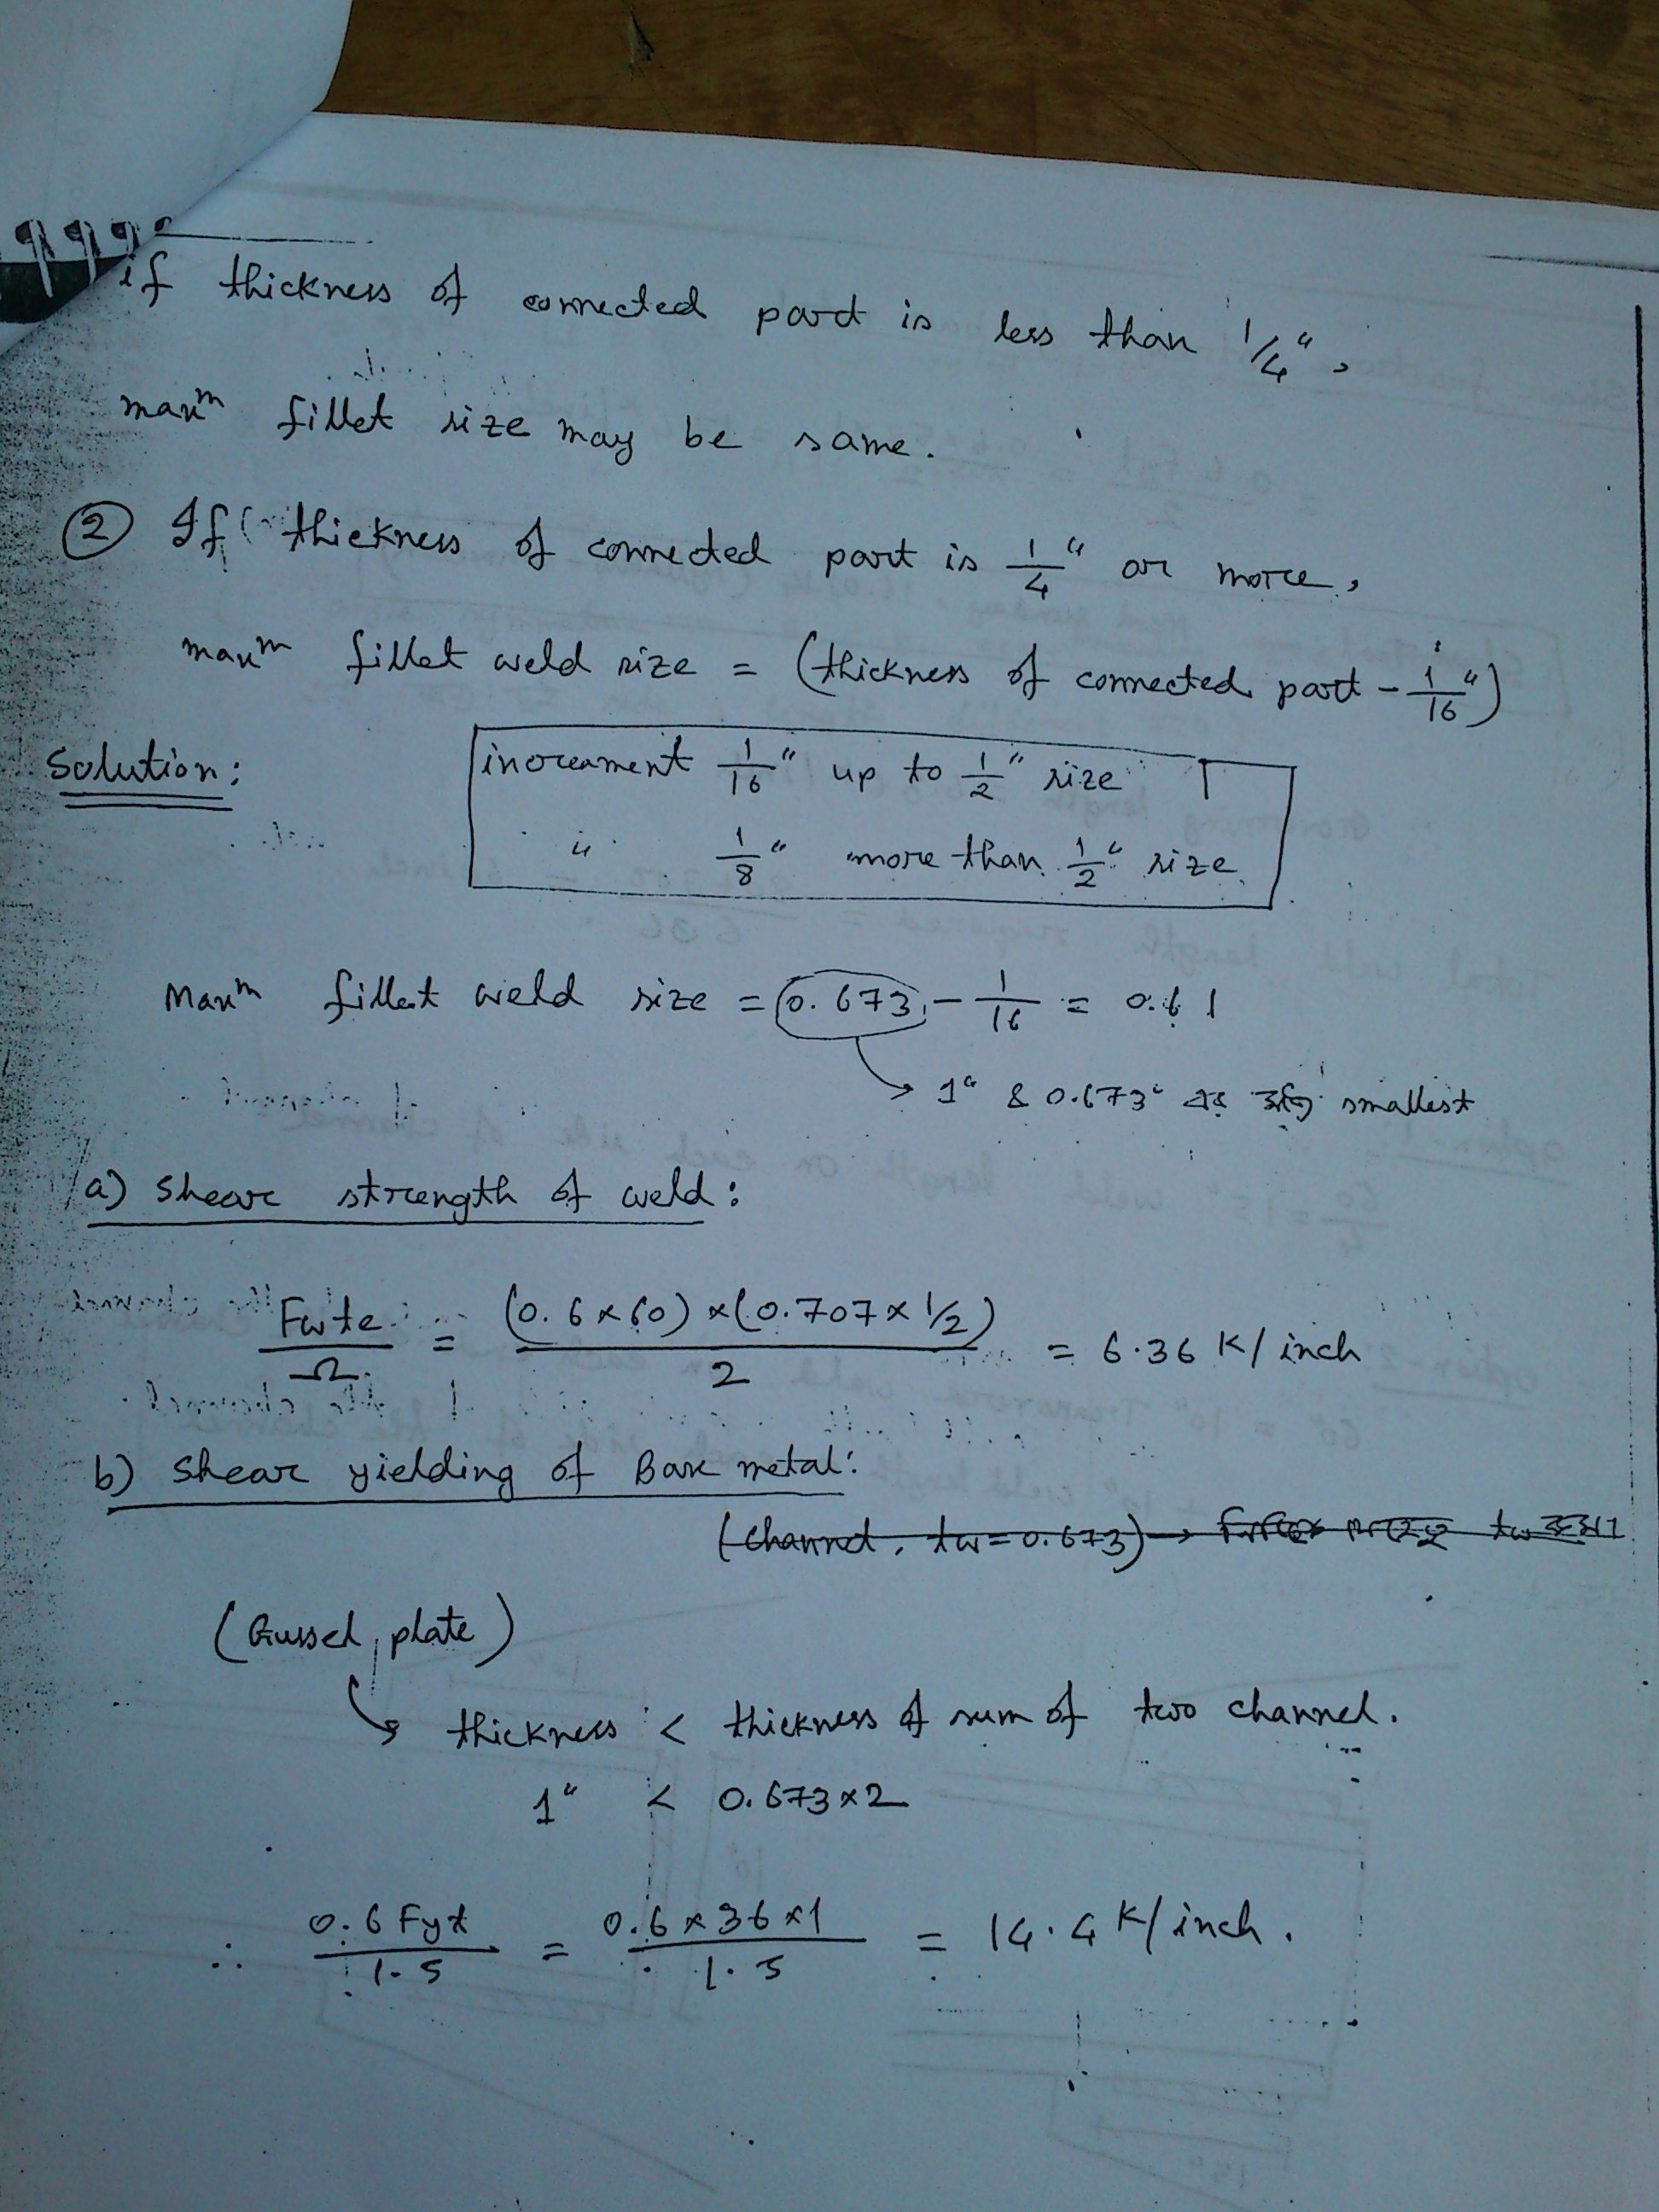 if thickness of connected part is less than 1/4",
maxᵐ fillet size may be same.
② If thickness of connected part is 1/4" or more,
maxᵐ fillet weld size = (thickness of connected part - 1/16")
Solution:
increament 1/16" up to 1/2" size
" 1/8" more than 1/2" size
Maxᵐ fillet weld size = 0.673 - 1/16 = 0.61
→ 1" & 0.673" এর মধ্যে smallest
a) Shear strength of weld:
Fwte/Ω = (0.6×60)×(0.707×1/2)/2 = 6.36 K/inch
b) Shear yielding of Base metal:
(channel, tw=0.673) →
(Gusset plate)
thickness < thickness of sum of two channel.
1" < 0.673×2
∴ 0.6Fyt/1.5 = 0.6×36×1/1.5 = 14.4 K/inch.